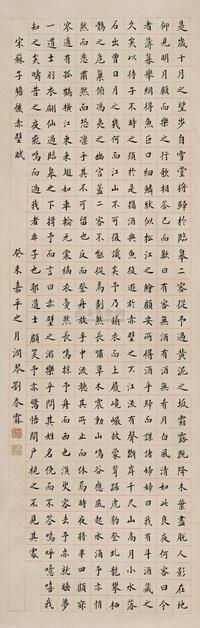 是歲十月之望步自雪堂將歸於臨皋二客從予過黃泥之坂霜露既降木葉盡脫人影在地
仰見明月顧而樂之行歌相答已而歎曰有客無酒有酒無肴月白風清如此良夜何客曰今
者薄暮舉網得魚巨口細鱗狀似松江之鱸顧安所得酒乎歸而謀諸婦婦曰我有斗酒藏之
久矣以待子不時之須於是攜酒與魚復遊於赤壁之下江流有聲斷岸千尺山高月小水落
石出曾日月之幾何而江山不可復識矣予乃攝衣而上履巉巖披蒙茸踞虎豹登虬龍攀栖
鶻之危巢俯馮夷之幽宮蓋二客不能從焉劃然長嘯草木震動山鳴谷應風起水涌予亦悄
然而悲肅然而恐凜乎其不可留也反而登舟放乎中流聽其所止而休焉時夜將半四顧寂
寥適有孤鶴橫江東來翅如車輪元裳縞衣戛然長鳴掠予舟而西也須臾客去予亦就睡夢
一道士羽衣翩仙過臨皋之下揖予而言曰赤壁之遊樂乎問其姓名俛而不答嗚呼噫嘻我
知之矣疇昔之夜飛鳴而過我者非子也耶道士顧笑予亦驚悟開戶視之不見其處
宋蘇子瞻後赤壁賦
癸未嘉平之月潤琴劉春霖